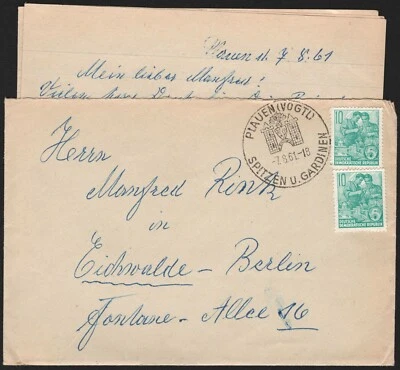 Plauen d. 7.8.61
Mein lieber Manfred!
Vielen
PLAUEN (VOGTL)
-7.8.61-18
SPITZEN U. GARDINEN
10
DEUTSCHE
DEMOKRATISCHE REPUBLIK
10
DEUTSCHE
DEMOKRATISCHE REPUBLIK
Herrn
Manfred
in
Eichwalde-Berlin
Fontane-Allee 16